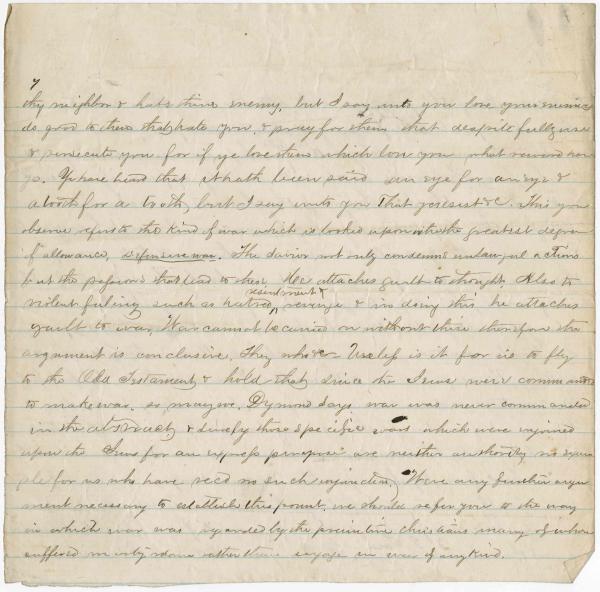 7
thy neighbor & hate thine enemy, but I say unto you love your enemies
do good to those that hate you, & pray for them that despitefully use
& persecute you for if ye love them which love you what reward have
ye. Ye have heard that it hath been said an eye for an eye &
a tooth for a tooth, but I say unto you That ye resist &c. This you
observe refers to the kind of war which is looked upon with the greatest degree
of allowance, defensive war. The Savior not only condemns unlawful actions
but the passions that lead to these. He attaches guilt to thought. Also to
resentment &
violent feeling such as hatred, revenge & in doing this he attaches
guilt to war. War cannot be carried on without these therefore the
argument is conclusive. How useless is it for us to fly
to the Old Testament & hold that since the Jews were commanded
to make war, so may we. Dymond says war was never commanded
in the abstract & surely those specific wars which were enjoined
upon the Jews for an express purpose are neither authority nor exam
ple for us who have rec'd no such injunction. Were any further argu
ment necessary to establish this point, we should refer you to the way
in which war was regarded by the primitive Christians many of whom
suffered martyrdom rather than engage in war of any kind.